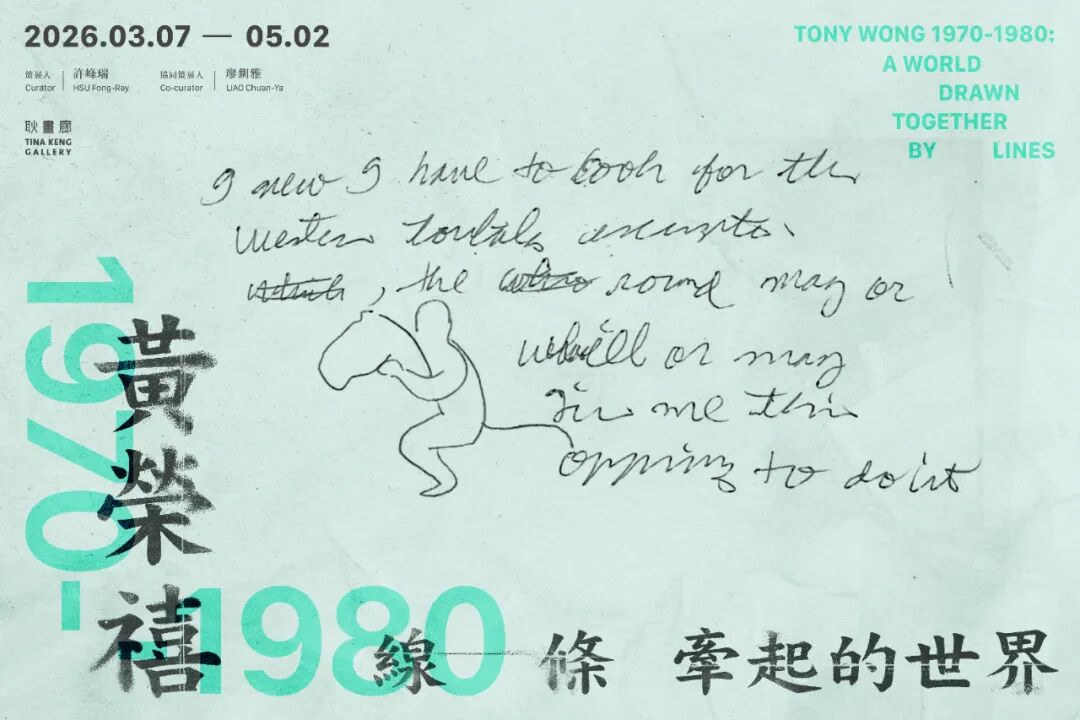 2026.03.07 — 05.02
策展人 許峰瑞
Curator HSU Fong-Ray
協同策展人 廖釧雅
Co-curator LIAO Chuan-Ya
耿畫廊
TINA KENG
GALLERY
TONY WONG 1970-1980:
A WORLD
DRAWN
TOGETHER
BY LINES
I new I have to look for the
western
, the round may or
or may
me this
to do it
1970-
1980
黃榮禧
線一條 牽起的世界